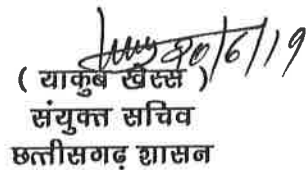 20/6/19
( याकुब खेस्स )
संयुक्त सचिव
छत्तीसगढ़ शासन